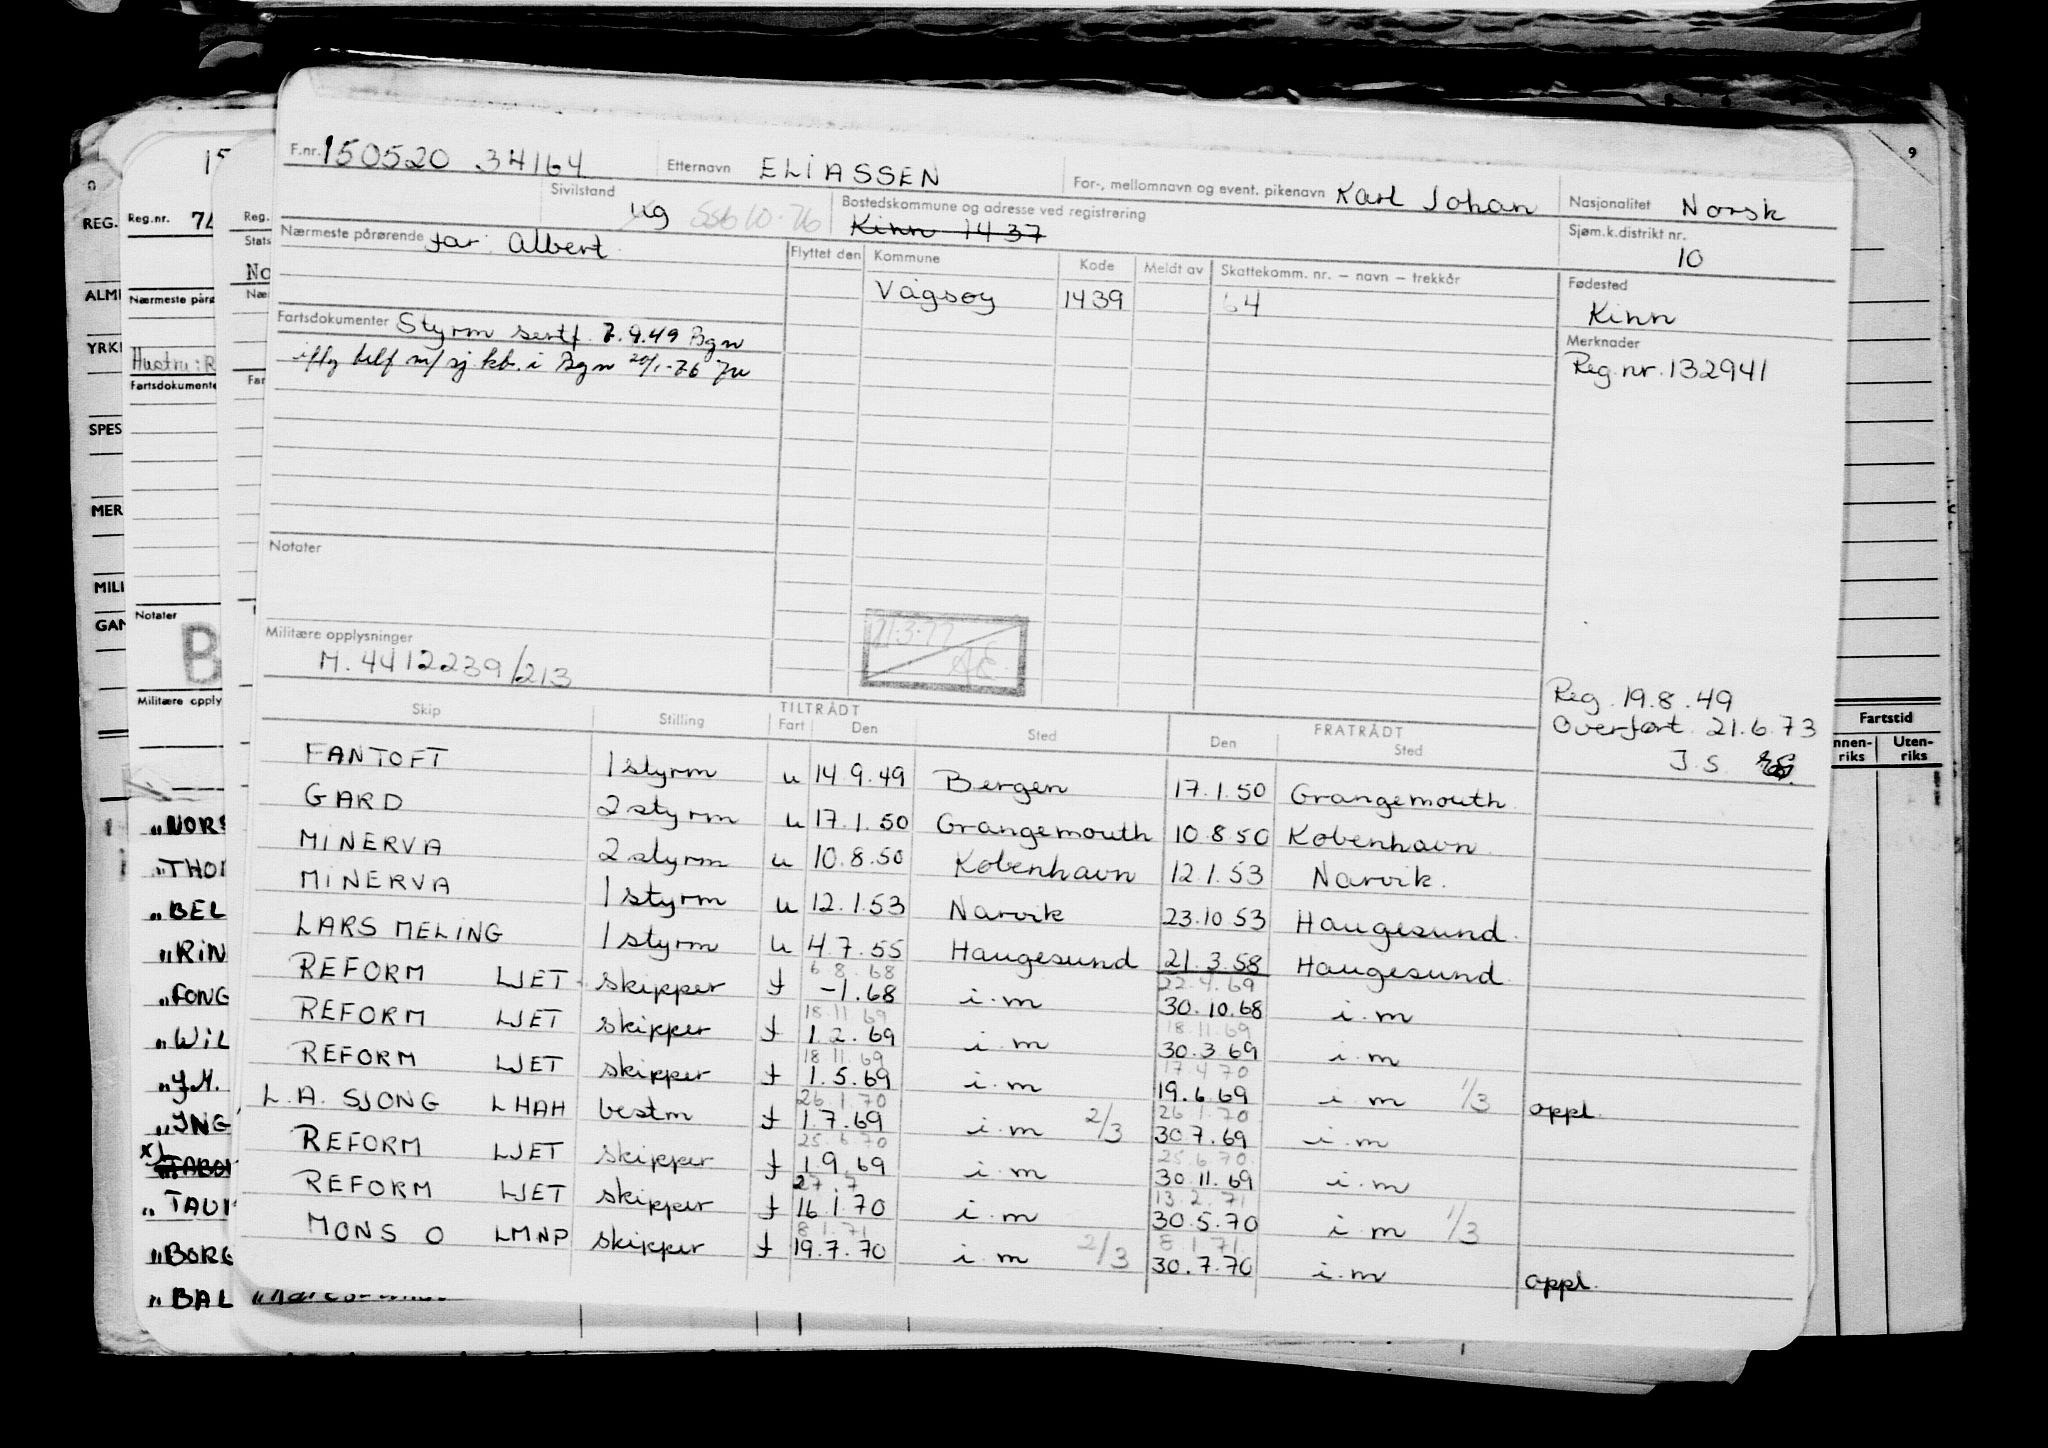 F.nr. 150520 34164 Etternavn ELIASSEN For-, mellomnavn og event. pikenavn Karl Johan Nasjonalitet Norsk
Sivilstand ug SSB 10-76 Bostedskommune og adresse ved registrering Kinn 1437 Sjøm.k.distrikt nr. 10
Nærmeste pårørende far: Albert Flyttet den Kommune Kode Meldt av Skattekomm. nr. – navn – trekkår Fødested
Vågsøy 1439 64 Kinn
Fartsdokumenter Styrm sertf. 7.9.49 Bgn Merknader
m/ sj.kt. i Bgn 20/1-76 Reg.nr. 132941
Notater
21.3.77
AE
Militære opplysninger
M. 4412239/213
Reg. 19.8.49
Overført 21.6.73
J.S.
Skip Stilling TILTRÅDT Fart Den Sted FRATRÅDT Den Sted
FANTOFT 1 styrm u 14.9.49 Bergen 17.1.50 Grangemouth
GARD 2 styrm u 17.1.50 Grangemouth 10.8.50 København
MINERVA 2 styrm u 10.8.50 København 12.1.53 Narvik.
MINERVA 1 styrm u 12.1.53 Narvik 23.10.53 Haugesund.
LARS MELING 1 styrm u 4.7.55 Haugesund 21.3.58 Haugesund
6.8.68 22.4.69
REFORM LJET skipper f -1.68 i.m 30.10.68 i.m
18.11.69 18.11.69
REFORM LJET skipper f 1.2.69 i.m 30.3.69 i.m
18.11.69 17.4.70
REFORM LJET skipper f 1.5.69 i.m 19.6.69 i.m 1/3 oppl.
26.1.70 26.1.70
L.A. SJONG LHAH bestm f 1.7.69 i.m 2/3 30.7.69 i.m
25.6.70 25.6.70
REFORM LJET skipper f 1.9.69 i.m 30.11.69 i.m
27.7 13.2.71
REFORM LJET skipper f 16.1.70 i.m 30.5.70 i.m 1/3
8.1.71 8.1.71
MONS O LMNP skipper f 19.7.70 i.m 2/3 30.7.70 i.m oppl.
REG.
ALM
YRK
SPES
MER
MILI
GAN
Reg.nr. 74
Nærmeste pårø
Hustru: R
Fartsdokumente
Notater
B
Militære opply
Reg.
Stats
No
Næ
Far
"NORS
"THO
"BEL
"RIN
"FONG
"WIL
"J.H.
"ING
x)
"TABO
"TAU
"BORG
"BAL
9
Fartstid
nnen-
riks
Uten-
riks